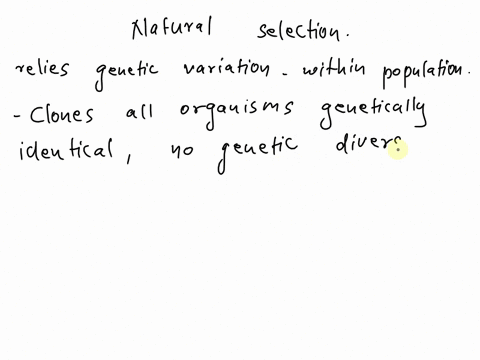 Natural selection.
relies genetic variation - within population.
- Clones all organisms genetically
identical, no genetic divers